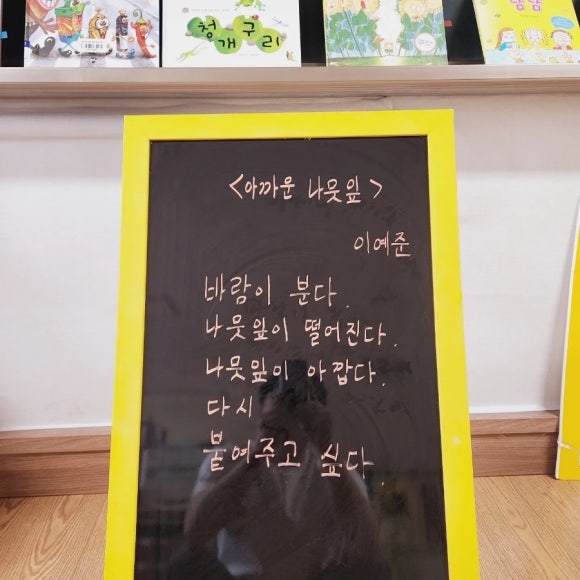 청개구리
<아까운 나뭇잎>
이예준
바람이 분다.
나뭇잎이 떨어진다.
나뭇잎이 아깝다.
다시
붙여주고 싶다.